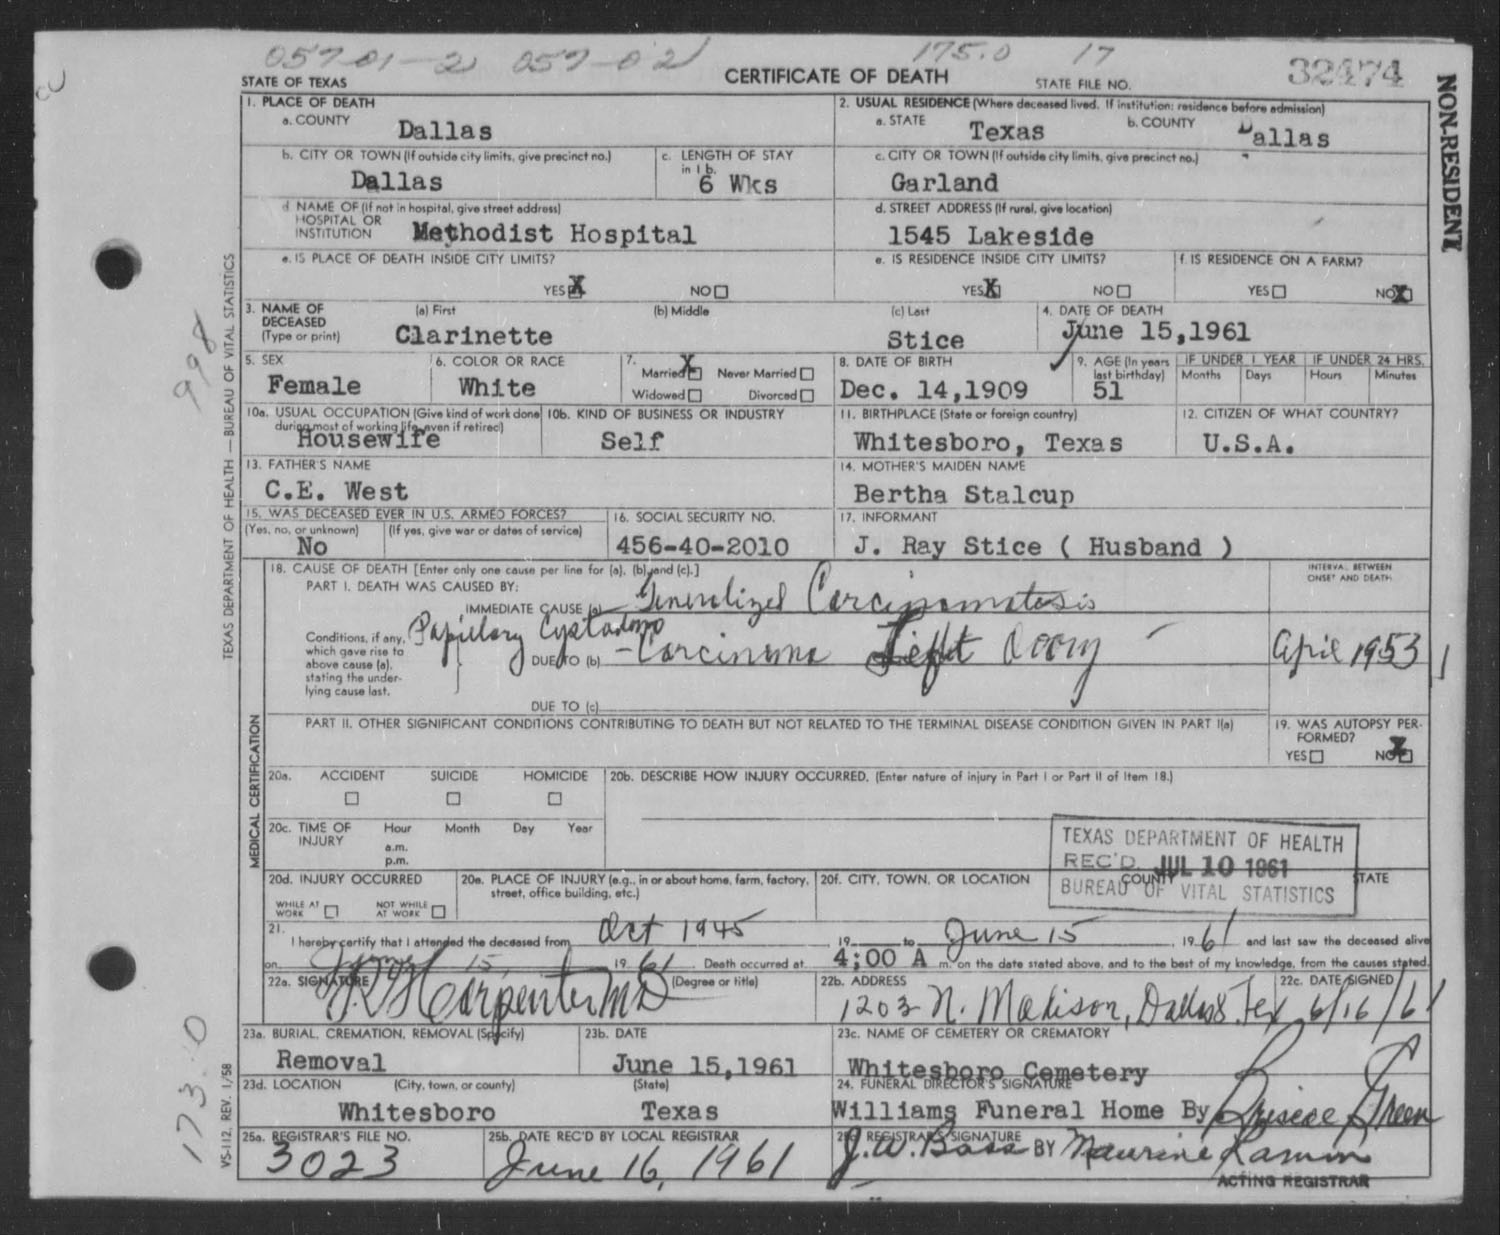 05701-2 057-02 175.0 17
STATE OF TEXAS CERTIFICATE OF DEATH STATE FILE NO. 32474
NON-RESIDENT
1. PLACE OF DEATH 2. USUAL RESIDENCE (Where deceased lived. If institution: residence before admission)
a. COUNTY Dallas a. STATE Texas b. COUNTY Dallas
b. CITY OR TOWN (If outside city limits, give precinct no.) c. LENGTH OF STAY in 1 b. c. CITY OR TOWN (If outside city limits, give precinct no.)
Dallas 6 Wks Garland
d NAME OF (If not in hospital, give street address) HOSPITAL OR INSTITUTION d. STREET ADDRESS (If rural, give location)
Methodist Hospital 1545 Lakeside
e. IS PLACE OF DEATH INSIDE CITY LIMITS? e. IS RESIDENCE INSIDE CITY LIMITS? f. IS RESIDENCE ON A FARM?
YES X NO YES X NO YES NO X
3. NAME OF DECEASED (Type or print) (a) First (b) Middle (c) Last 4. DATE OF DEATH
Clarinette Stice June 15,1961
5. SEX 6. COLOR OR RACE 7. Married X Never Married Widowed Divorced 8. DATE OF BIRTH 9. AGE (In years last birthday) IF UNDER 1 YEAR Months Days IF UNDER 24 HRS. Hours Minutes
Female White Dec. 14,1909 51
10a. USUAL OCCUPATION (Give kind of work done during most of working life, even if retired) 10b. KIND OF BUSINESS OR INDUSTRY 11. BIRTHPLACE (State or foreign country) 12. CITIZEN OF WHAT COUNTRY?
Housewife Self Whitesboro, Texas U.S.A.
13. FATHER'S NAME 14. MOTHER'S MAIDEN NAME
C.E. West Bertha Stalcup
15. WAS DECEASED EVER IN U.S. ARMED FORCES? 16. SOCIAL SECURITY NO. 17. INFORMANT
(Yes, no, or unknown) (If yes, give war or dates of service)
No 456-40-2010 J. Ray Stice ( Husband )
18. CAUSE OF DEATH [Enter only one cause per line for (a), (b), and (c).] INTERVAL BETWEEN ONSET AND DEATH
PART I. DEATH WAS CAUSED BY:
IMMEDIATE CAUSE (a) Generalized Carcinomatosis
Conditions, if any, which gave rise to above cause (a), stating the underlying cause last.
Papillary Cystadeno
DUE TO (b) -Carcinoma Left Ovary - April 1953
DUE TO (c)
PART II. OTHER SIGNIFICANT CONDITIONS CONTRIBUTING TO DEATH BUT NOT RELATED TO THE TERMINAL DISEASE CONDITION GIVEN IN PART I(a) 19. WAS AUTOPSY PERFORMED?
YES NO X
MEDICAL CERTIFICATION
20a. ACCIDENT SUICIDE HOMICIDE 20b. DESCRIBE HOW INJURY OCCURRED. (Enter nature of injury in Part I or Part II of Item 18.)
20c. TIME OF INJURY Hour Month Day Year
a.m.
p.m.
TEXAS DEPARTMENT OF HEALTH
REC'D JUL 10 1961
BUREAU OF VITAL STATISTICS
20d. INJURY OCCURRED 20e. PLACE OF INJURY (e.g., in or about home, farm, factory, street, office building, etc.) 20f. CITY, TOWN, OR LOCATION COUNTY STATE
WHILE AT WORK NOT WHILE AT WORK
21. I hereby certify that I attended the deceased from Oct 1945, 19 to June 15, 1961 and last saw the deceased alive
on June 15, 1961. Death occurred at 4:00 A m. on the date stated above, and to the best of my knowledge, from the causes stated.
22a. SIGNATURE (Degree or title) 22b. ADDRESS 22c. DATE SIGNED
Carpenter MD 1203 N. Madison, Dallas Tex 6/16/61
23a. BURIAL, CREMATION, REMOVAL (Specify) 23b. DATE 23c. NAME OF CEMETERY OR CREMATORY
Removal June 15,1961 Whitesboro Cemetery
23d. LOCATION (City, town, or county) (State) 24. FUNERAL DIRECTOR'S SIGNATURE
Whitesboro Texas Williams Funeral Home By Briscoe Green
25a. REGISTRAR'S FILE NO. 25b. DATE REC'D BY LOCAL REGISTRAR 25c. REGISTRAR'S SIGNATURE
3023 June 16, 1961 J.W. Bass BY Maurine
ACTING REGISTRAR
TEXAS DEPARTMENT OF HEALTH — BUREAU OF VITAL STATISTICS
VS-112, REV. 1/58
998
173.0